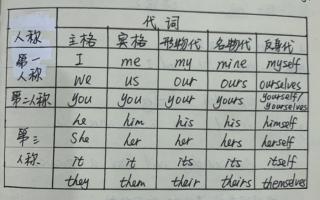 代词
人称 主格 宾格 形物代 名物代 反身代
第一 I me my mine myself
人称 we us our ours ourselves
第二人称 you you your yours yourself/
yourselves
he him his his himself
第三 she her her hers herself
人称 it it its its itself
they them their theirs themselves